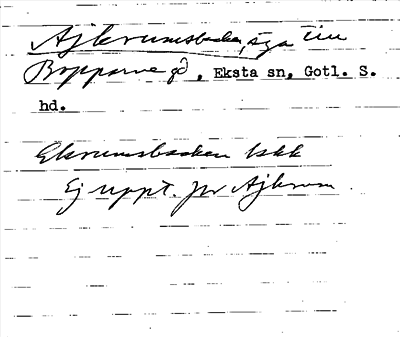 Ajkrumsbacke, äga till
Bopparve gd, Eksta sn, Gotl. S.
hd.
Ekrumsbacken hskk
Ej uppt. jvr Ajkrum